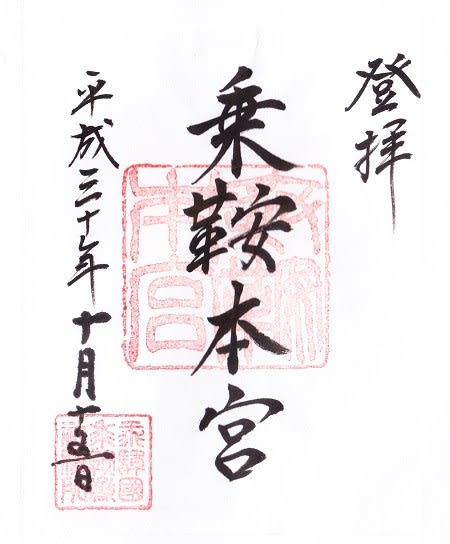 登拝
乗鞍本宮
平成三十年十月十五日